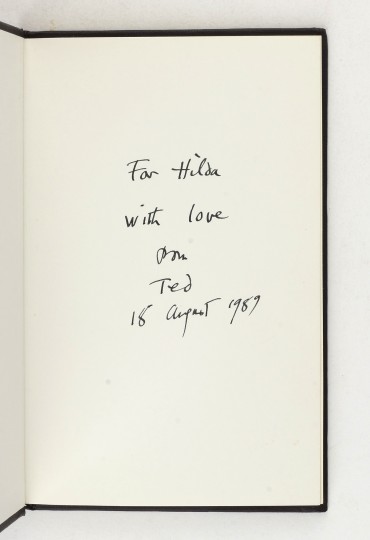 For Hilda
with love
from
Ted
18 August 1989